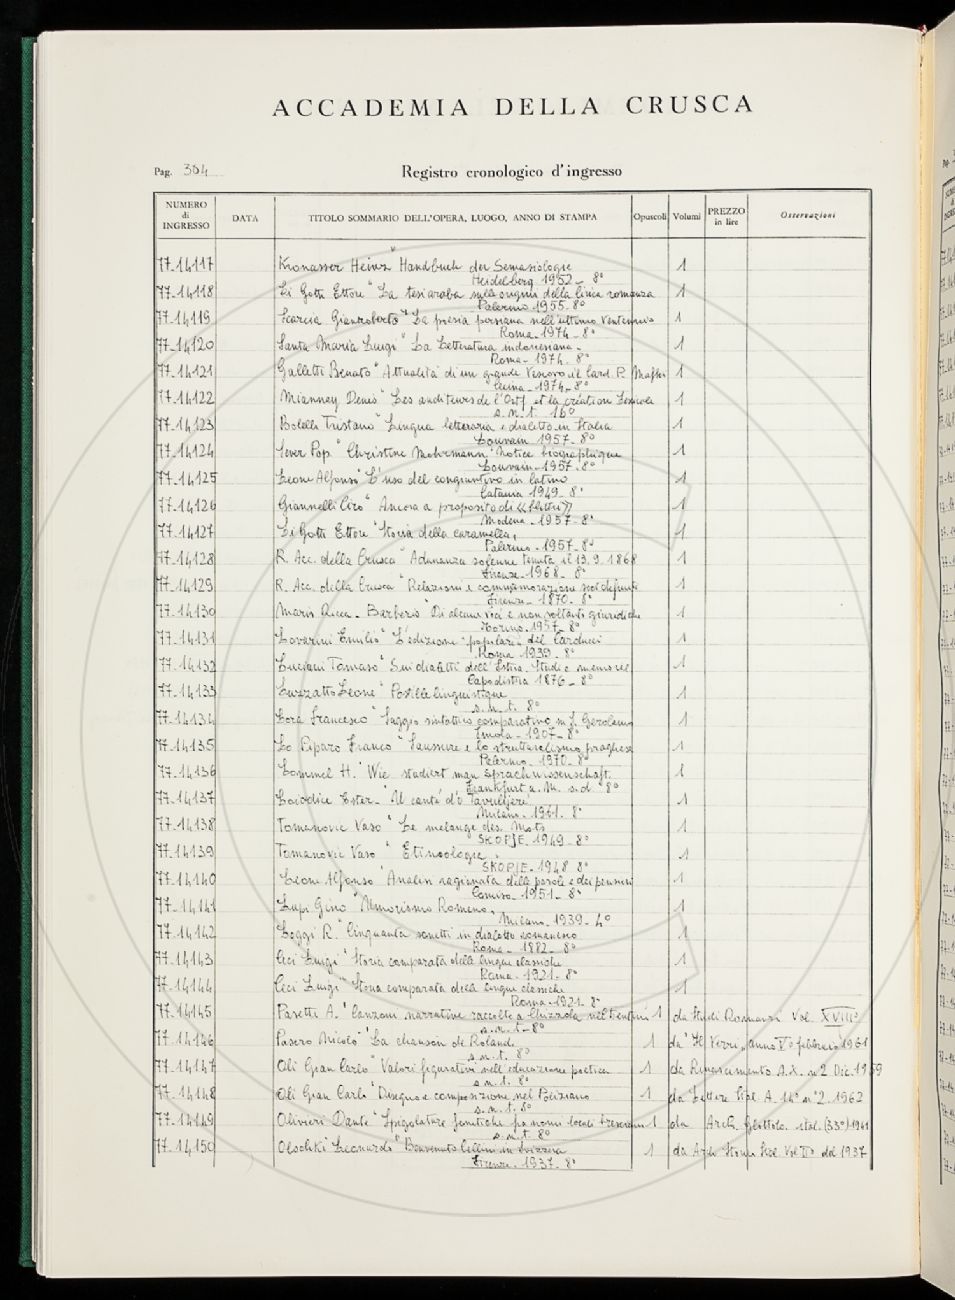 ACCADEMIA DELLA CRUSCA
Pag. 304
Registro cronologico d'ingresso
NUMERO di INGRESSO DATA TITOLO SOMMARIO DELL'OPERA, LUOGO, ANNO DI STAMPA Opuscoli Volumi PREZZO in lire Osservazioni
77-14117 Kronasser Heinz "Handbuch der Semasiologie 1
Heidelberg 1952 - 8°
77-14118 Li Gotti Ettore "La tesi araba sulle origini della lirica romanza 1
Palermo 1955. 8°
77-14119 Scarcia Gianroberto "La poesia persiana nell'ultimo ventennio 1
Roma - 1974 - 8°
77-14120 Santa Maria Luigi "La Letteratura indonesiana - 1
Roma - 1974. 8°
77-14121 Galletti Benato "Attualità di un grande Vescovo il Card. P. Maffei 1
1974 - 8°
77-14122 Denis "Les auditeurs de l'Ortf et la création 1
s.n.t. 16°
77-14123 Bolelli Tristano "Lingua letteraria e dialetto in Italia 1
Louvain 1957. 8°
77-14124 Sever Pop "Christine Mohrmann" Notice biographique 1
Louvain - 1957 - 8°
77-14125 Leone Alfonso "L'uso del congiuntivo in latino 1
Catania 1949 - 8°
77-14126 Giannelli Ciro "Ancora a proposito di 1
Modena - 1957 - 8°
77-14127 Li Gotti Ettore "Storia della caramella, 1
Palermo - 1957 - 8°
77-14128 R. Acc. della Crusca "Adunanza solenne tenuta il 13.9.1868 1
Firenze - 1968 - 8°
77-14129 R. Acc. della Crusca "Relazioni e commemorazione soci defunti 1
Firenze - 1870 - 8°
77-14130 Mario Ricca - Barberis "Di alcune voci e non soltanto giuridiche 1
Torino - 1957 - 8°
77-14131 Lovarini Emilio "L'edizione popolari del Carducci 1
Roma 1939 - 8°
77-14132 Luciani Tomaso "Sui dialetti dell'Istria. Studi e memorie 1
Capodistria 1876 - 8°
77-14133 Luzzatto Leone "Postille linguistique 1
s.n.t. 8°
77-14134 Lora Francesco "Saggio sintattico comparativo in S. Gerolamo 1
Imola - 1907 - 8°
77-14135 Lo Piparo Franco "Saussure e lo strutturalismo praghese 1
Palermo - 1970 - 8°
77-14136 Lommel H. "Wie studiert man Sprachwissenschaft. 1
Frankfurt a. M. s.d. 8°
77-14137 Loiodice Ester - 1
Milano - 1961. 8°
77-14138 Tomanovic Vaso "Le melange des Mots 1
SKOPJE - 1949 - 8°
77-14139 Tomanovic Vaso " 1
SKOPJE - 1948 8°
77-14140 Leone Alfonso "Analisi ragionata delle parole e dei pensieri 1
Comiso - 1951 - 8°
77-14141 Lupi Gino "Umorismo Romeno, 1
Milano - 1939 - 4°
77-14142 Loggi R. "Cinquanta sonetti in dialetto romanesco 1
Roma - 1882 - 8°
77-14143 Ceci Luigi "Storia comparata delle lingue classiche 1
Roma - 1921 - 8°
77-14144 Ceci Luigi "Storia comparata delle lingue classiche 1
Roma - 1921 - 8°
77-14145 Pasetti A. "Canzoni narrative raccolte a Chizzola nel Trentino 1 da Studi Romanzi Vol. XVIII°
s.n.t. - 8°
77-14146 Pasero Nicolò "La chanson de Roland 1 da "Il Verri" anno V° febbraio 1961
s.n.t. 8°
77-14147 Oli Gian Carlo "Valori figurativi nell'educazione poetica 1 da Rinascimento A.X. n°2 Dic. 1959
s.n.t. 8°
77-14148 Oli Gian Carlo "Disegno e composizione nel Poliziano 1 da Lettere Ital. A. 14° n°2 - 1962
s.n.t. 8°
77-14149 Olivieri Dante "Spigolature fonetiche fra nomi locali trevisani 1 da Arch. glottolo. ital. (33°) 1941
s.n.t. 8°
77-14150 Olschki Leonardo "Benvenuto Cellini in Svizzera 1 da Arch Stor. Ital. Vol II° del 1937
Firenze - 1937 - 8°